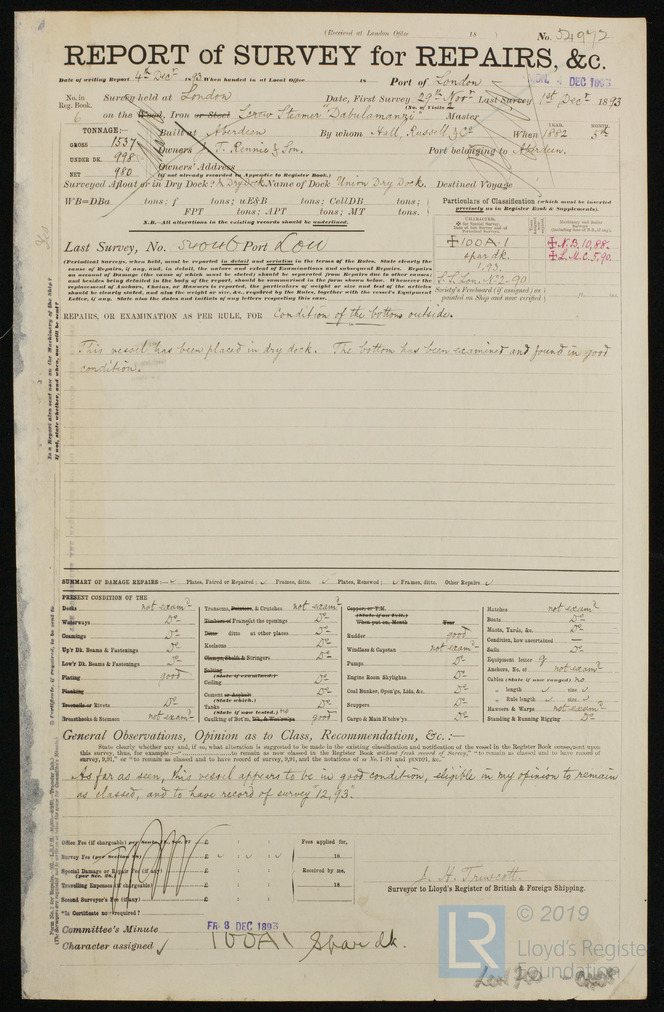 (Received at London Office 18 )
No. 54972
REPORT of SURVEY for REPAIRS, &c.
Date of writing Report 4th Decr 1893. When handed in at Local Office 18 Port of London
MON. 4 DEC 1893
No. in Reg. Book. Survey held at London Date, First Survey 29th Novr Last Survey 1st Decr 1893
(No. of Visits 2
6 on the Wood, Iron or Steel Screw Steamer "Dabulamanzi" Master
TONNAGE:— Built at Aberdeen By whom Hall, Russell & Co When 1882 YEAR. MONTH. 5th
GROSS 1537
UNDER DK. 998
NET 980
Owners J. T. Rennie & Son. Port belonging to Aberdeen.
Owners' Address
(if not already recorded in Appendix to Register Book.)
Surveyed Afloat or in Dry Dock? Dry Dock Name of Dock Union Dry Dock. Destined Voyage
WB=DBa tons; f tons; uE&B tons; CellDB tons;
FPT tons; APT tons; MT tons.
N.B.—All alterations in the existing records should be underlined.
Particulars of Classification (which must be inserted precisely as in Register Book & Supplements).
Last Survey, No. Port Lon
✠100A.1
spar dk.
1.93.
✠N.B.10,88.
✠L.M.C.5.90.
S.S. Lon. No.2-90
Society's Freeboard (if assigned) as painted on Ship and now verified
(Periodical Surveys, when held, must be reported in detail and seriatim in the terms of the Rules. State clearly the
cause of Repairs, if any, and, in detail, the nature and extent of Examinations and subsequent Repairs. Repairs
on account of Damage (the cause of which must be stated) should be separated from Repairs due to other causes;
and besides being detailed in the body of the report, should be summarised in the form shown below. Whenever the
replacement of Anchors, Chains, or Hawsers is reported, the particulars of weight or size and test of the articles
should be clearly stated, and also the weight or size, &c., required by the Rules, together with the vessel's Equipment
Letter, if any. State also the dates and initials of any letters respecting this case.
REPAIRS, OR EXAMINATION AS PER RULE, FOR Condition of the bottom outside.
This vessel has been placed in dry dock. The bottom has been examined and found in good
condition.
SUMMARY OF DAMAGE REPAIRS:— Plates, Faired or Repaired; Frames, ditto. Plates, Renewed; Frames, ditto. Other Repairs
PRESENT CONDITION OF THE
Decks not examd
Waterways Do
Coamings Do
Up'r Dk. Beams & Fastenings Do
Low'r Dk. Beams & Fastenings Do
Plating good
Planking
Treenails or Rivets Do
Breasthooks & Stemson not examd
Transoms, Pointers, & Crutches not examd
Timbers or Frames at the openings Do
Ditto ditto at other places Do
Keelsons Do
Clamps, Shelfs & Stringers Do
Salting
(State if examined.)
Ceiling Do
Cement or Asphalt
(State which.) Do
Tanks
(State if now tested.) no Do
Caulking of Bot'm, Dk. & Wat'rw'ys good
Copper, or Y.M.
(State if on Felt.)
When put on, Month Year
Rudder good
Windlass & Capstan not examd
Pumps Do
Engine Room Skylights Do
Coal Bunker, Open'gs, Lids, &c. Do
Scuppers Do
Cargo & Main H'tchw'ys Do
Hatches not examd
Boats Do
Masts, Yards, &c. Do
Condition, how ascertained —
Sails Do
Equipment letter
Anchors, No. of not examd
Cables (State if now ranged) no
„ length size
„ Rule length size
Hawsers & Warps not examd
Standing & Running Rigging Do
General Observations, Opinion as to Class, Recommendation, &c.:—
State clearly whether any, and if so, what alteration is suggested to be made in the existing classification and notification of the vessel in the Register Book consequent upon
As far as seen, this vessel appears to be in good condition, eligible in my opinion to remain
as classed, and to have record of survey "12,93".
Office Fee (if chargeable) £ : : Fees applied for,
Survey Fee £ 18
Special Damage or Repair Fee (if any) £ Received by me,
Travelling Expenses (if chargeable) £ 18
Second Surveyor's Fee (if any) £
J. H. Truscott
Surveyor to Lloyd's Register of British & Foreign Shipping.
*Is Certificate now required?
Committee's Minute FRI 8 DEC 1893
Character assigned 100A1 Spar dk.
LR
© 2019
Lloyd's Register
Foundation